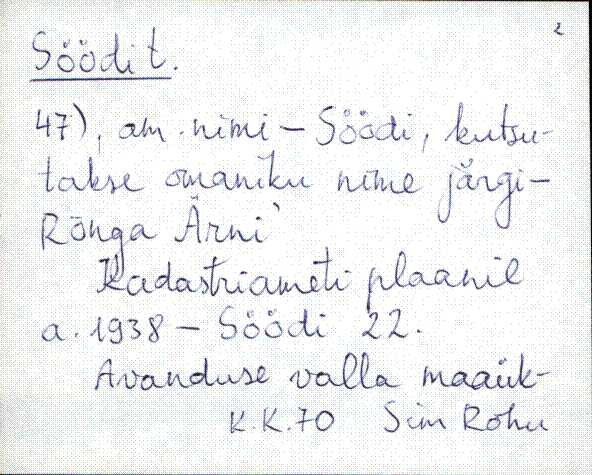 2
Söödi t.
47), am. nimi – Söödi, kutsu-
takse omaniku nime järgi –
Rõnga Ärni'
Kadastriameti plaanil
a. 1938 – Söödi 22.
Avanduse valla maaük-
K.K.70 Sim Rohu